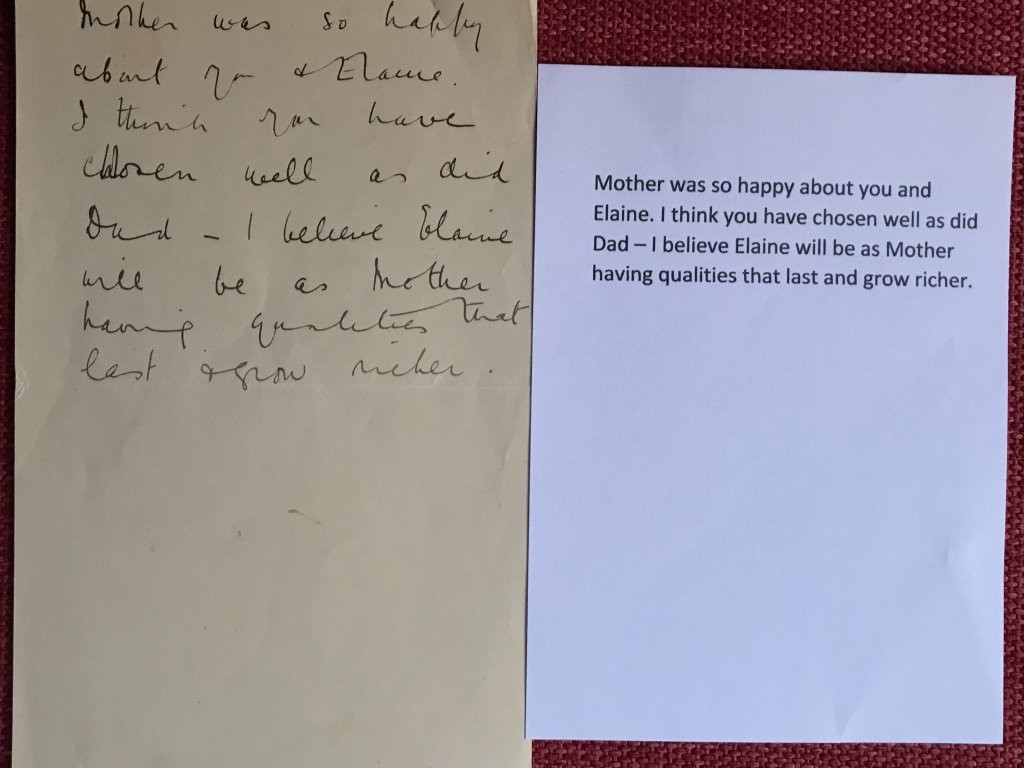 Mother was so happy
about you & Elaine.
I think you have
chosen well as did
Dad – I believe Elaine
will be as Mother
having qualities that
last & grow richer.
Mother was so happy about you and
Elaine. I think you have chosen well as did
Dad – I believe Elaine will be as Mother
having qualities that last and grow richer.